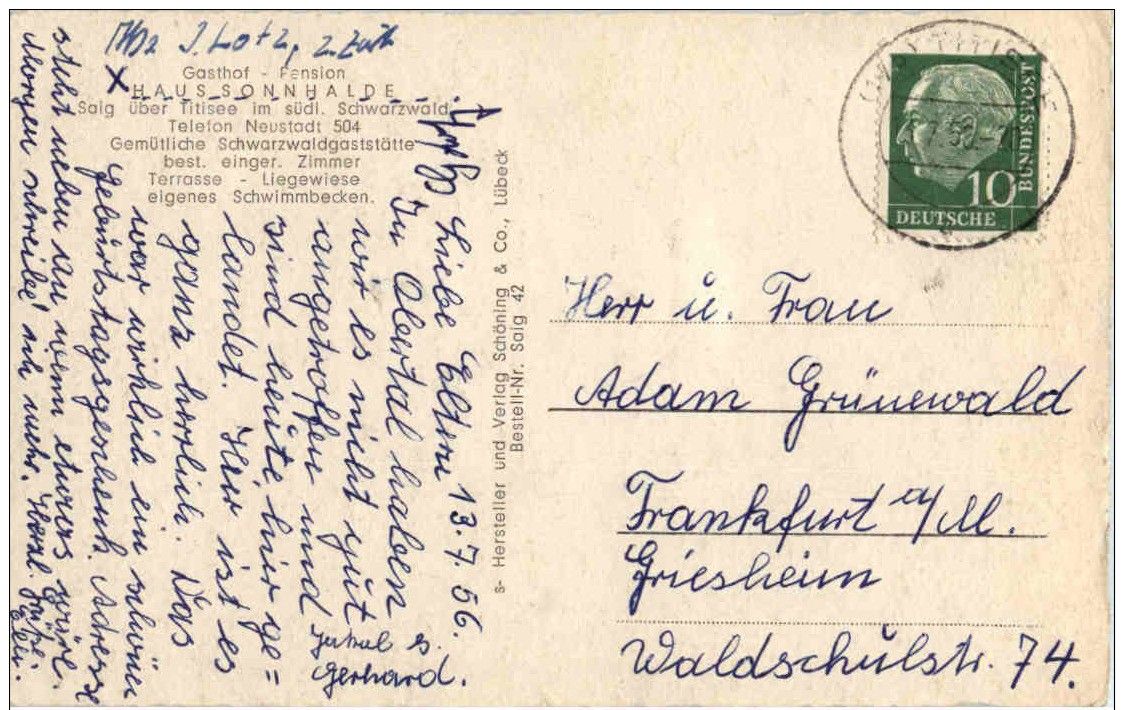 J. Lotz, z. Zeit
Gasthof - Pension
HAUS SONNHALDE
Saig über Titisee im südl. Schwarzwald
Telefon Neustadt 504
Gemütliche Schwarzwaldgaststätte
best. einger. Zimmer
Terrasse - Liegewiese
eigenes Schwimmbecken.
Liebe Eltern 13.7.56.
In Obertal haben
wir es nicht gut
angetroffen und
sind heute hier ge=
landet. Hier ist es
ganz herrlich. Das
war wirklich ein schöner
Geburtstagsgeschenk. Adresse
steht neben an wenn etwas wäre.
Morgen schreibe ich mehr. Herzl. Grüße
Gerhard.
s- Hersteller und Verlag Schöning & Co., Lübeck
Bestell-Nr. Saig 42
DEUTSCHE
BUNDESPOST
10
Herr u. Frau
Adam Grünewald
Frankfurt a/M.
Griesheim
Waldschulstr. 74.